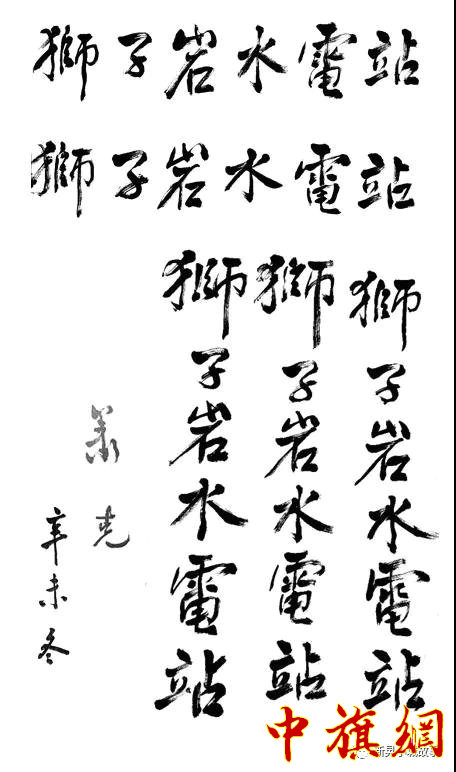 獅子岩水電站
獅子岩水電站
獅子岩水電站
獅子岩水電站
獅子岩水電站
萧克
辛未冬
中旗網